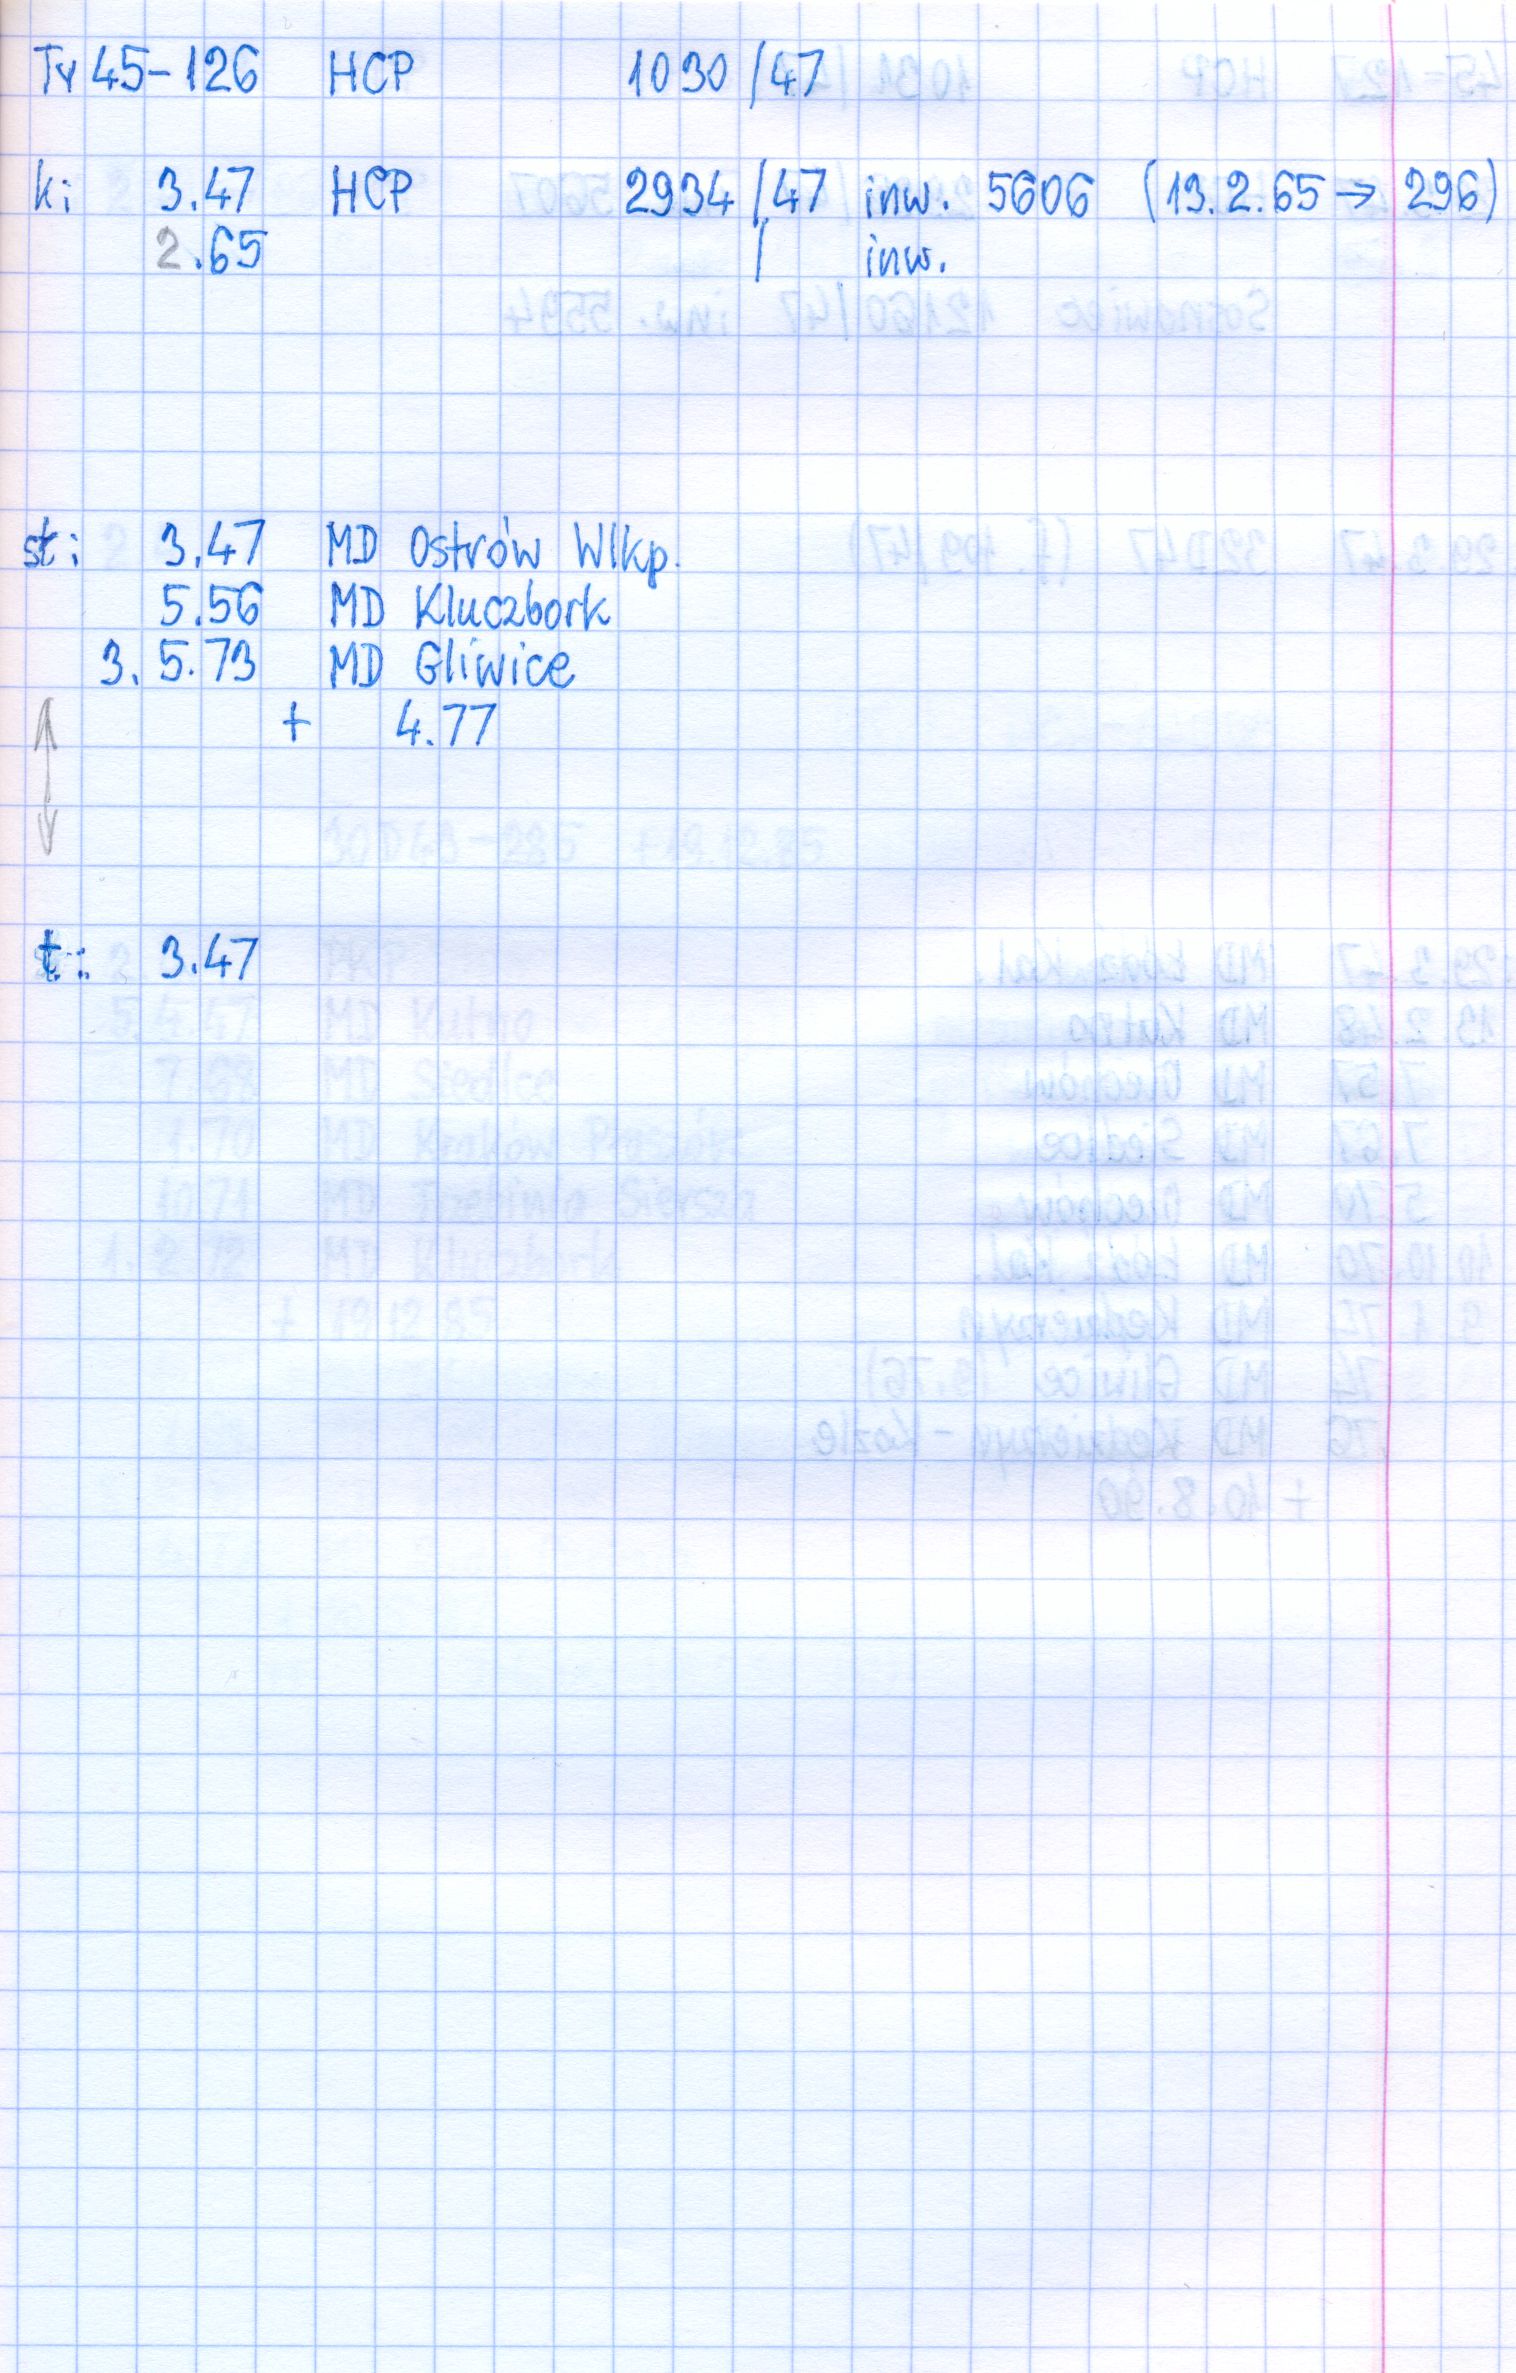 Ty45-126 HCP 1030/47
k: 3.47 HCP 2934/47 inw. 5606 (13.2.65 → 296)
2.65 / inw.
st: 3.47 MD Ostrów Wlkp.
5.56 MD Kluczbork
3.5.73 MD Gliwice
+ 4.77
t: 3.47